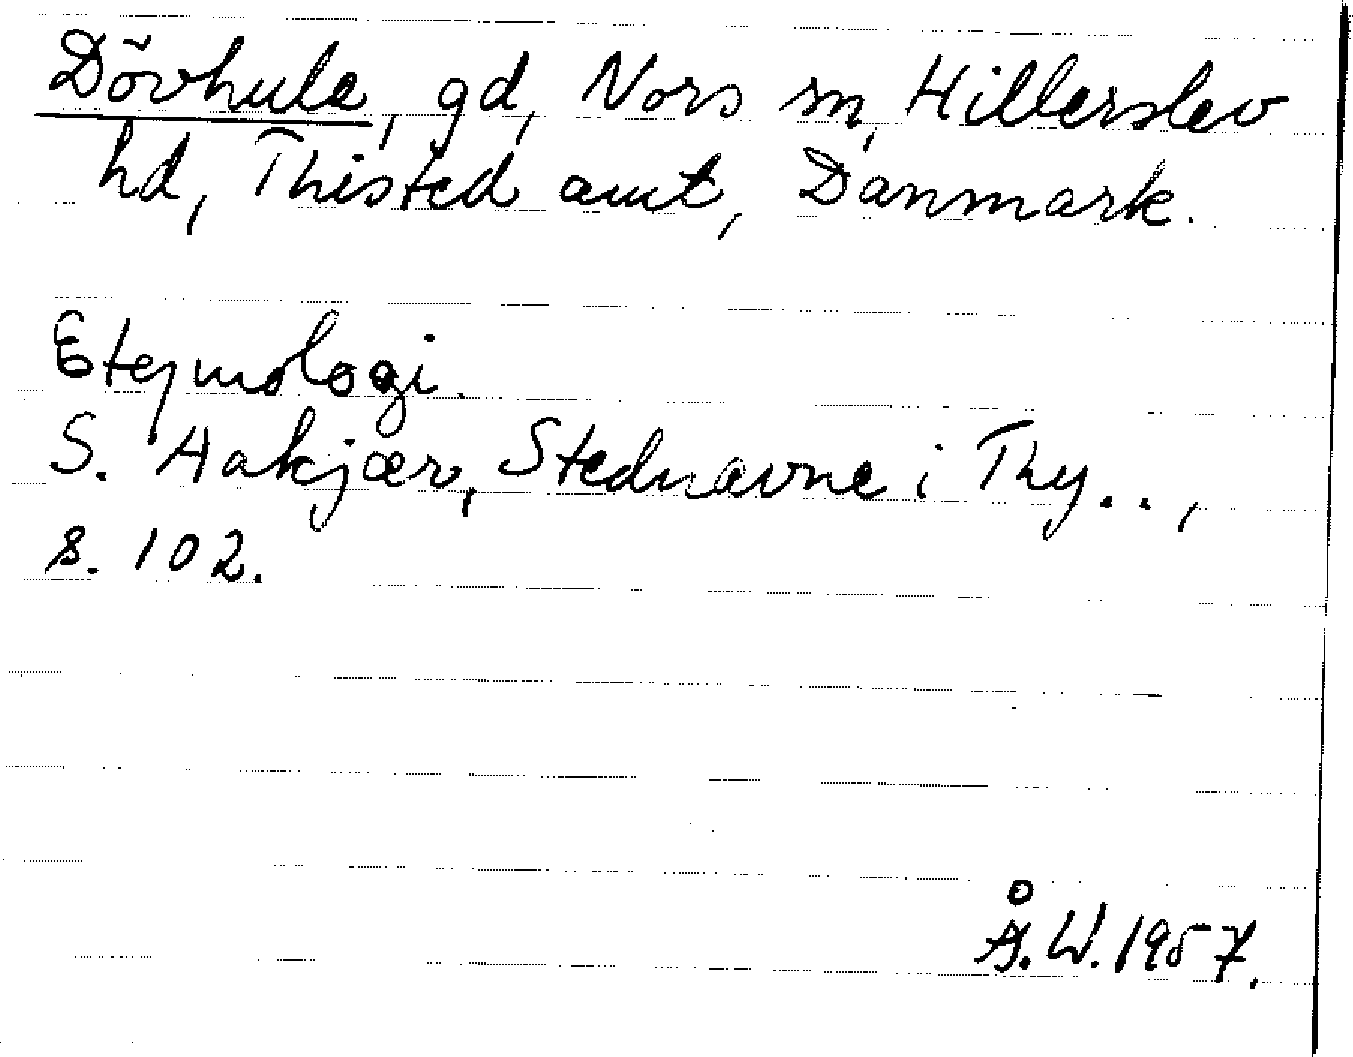 Dövhule, gd, Nors sn, Hillerslev
hd, Thisted amt, Danmark.
Etymologi.
S. Aakjær, Stednavne i Thy..,
s. 102.
Å.W. 1957.